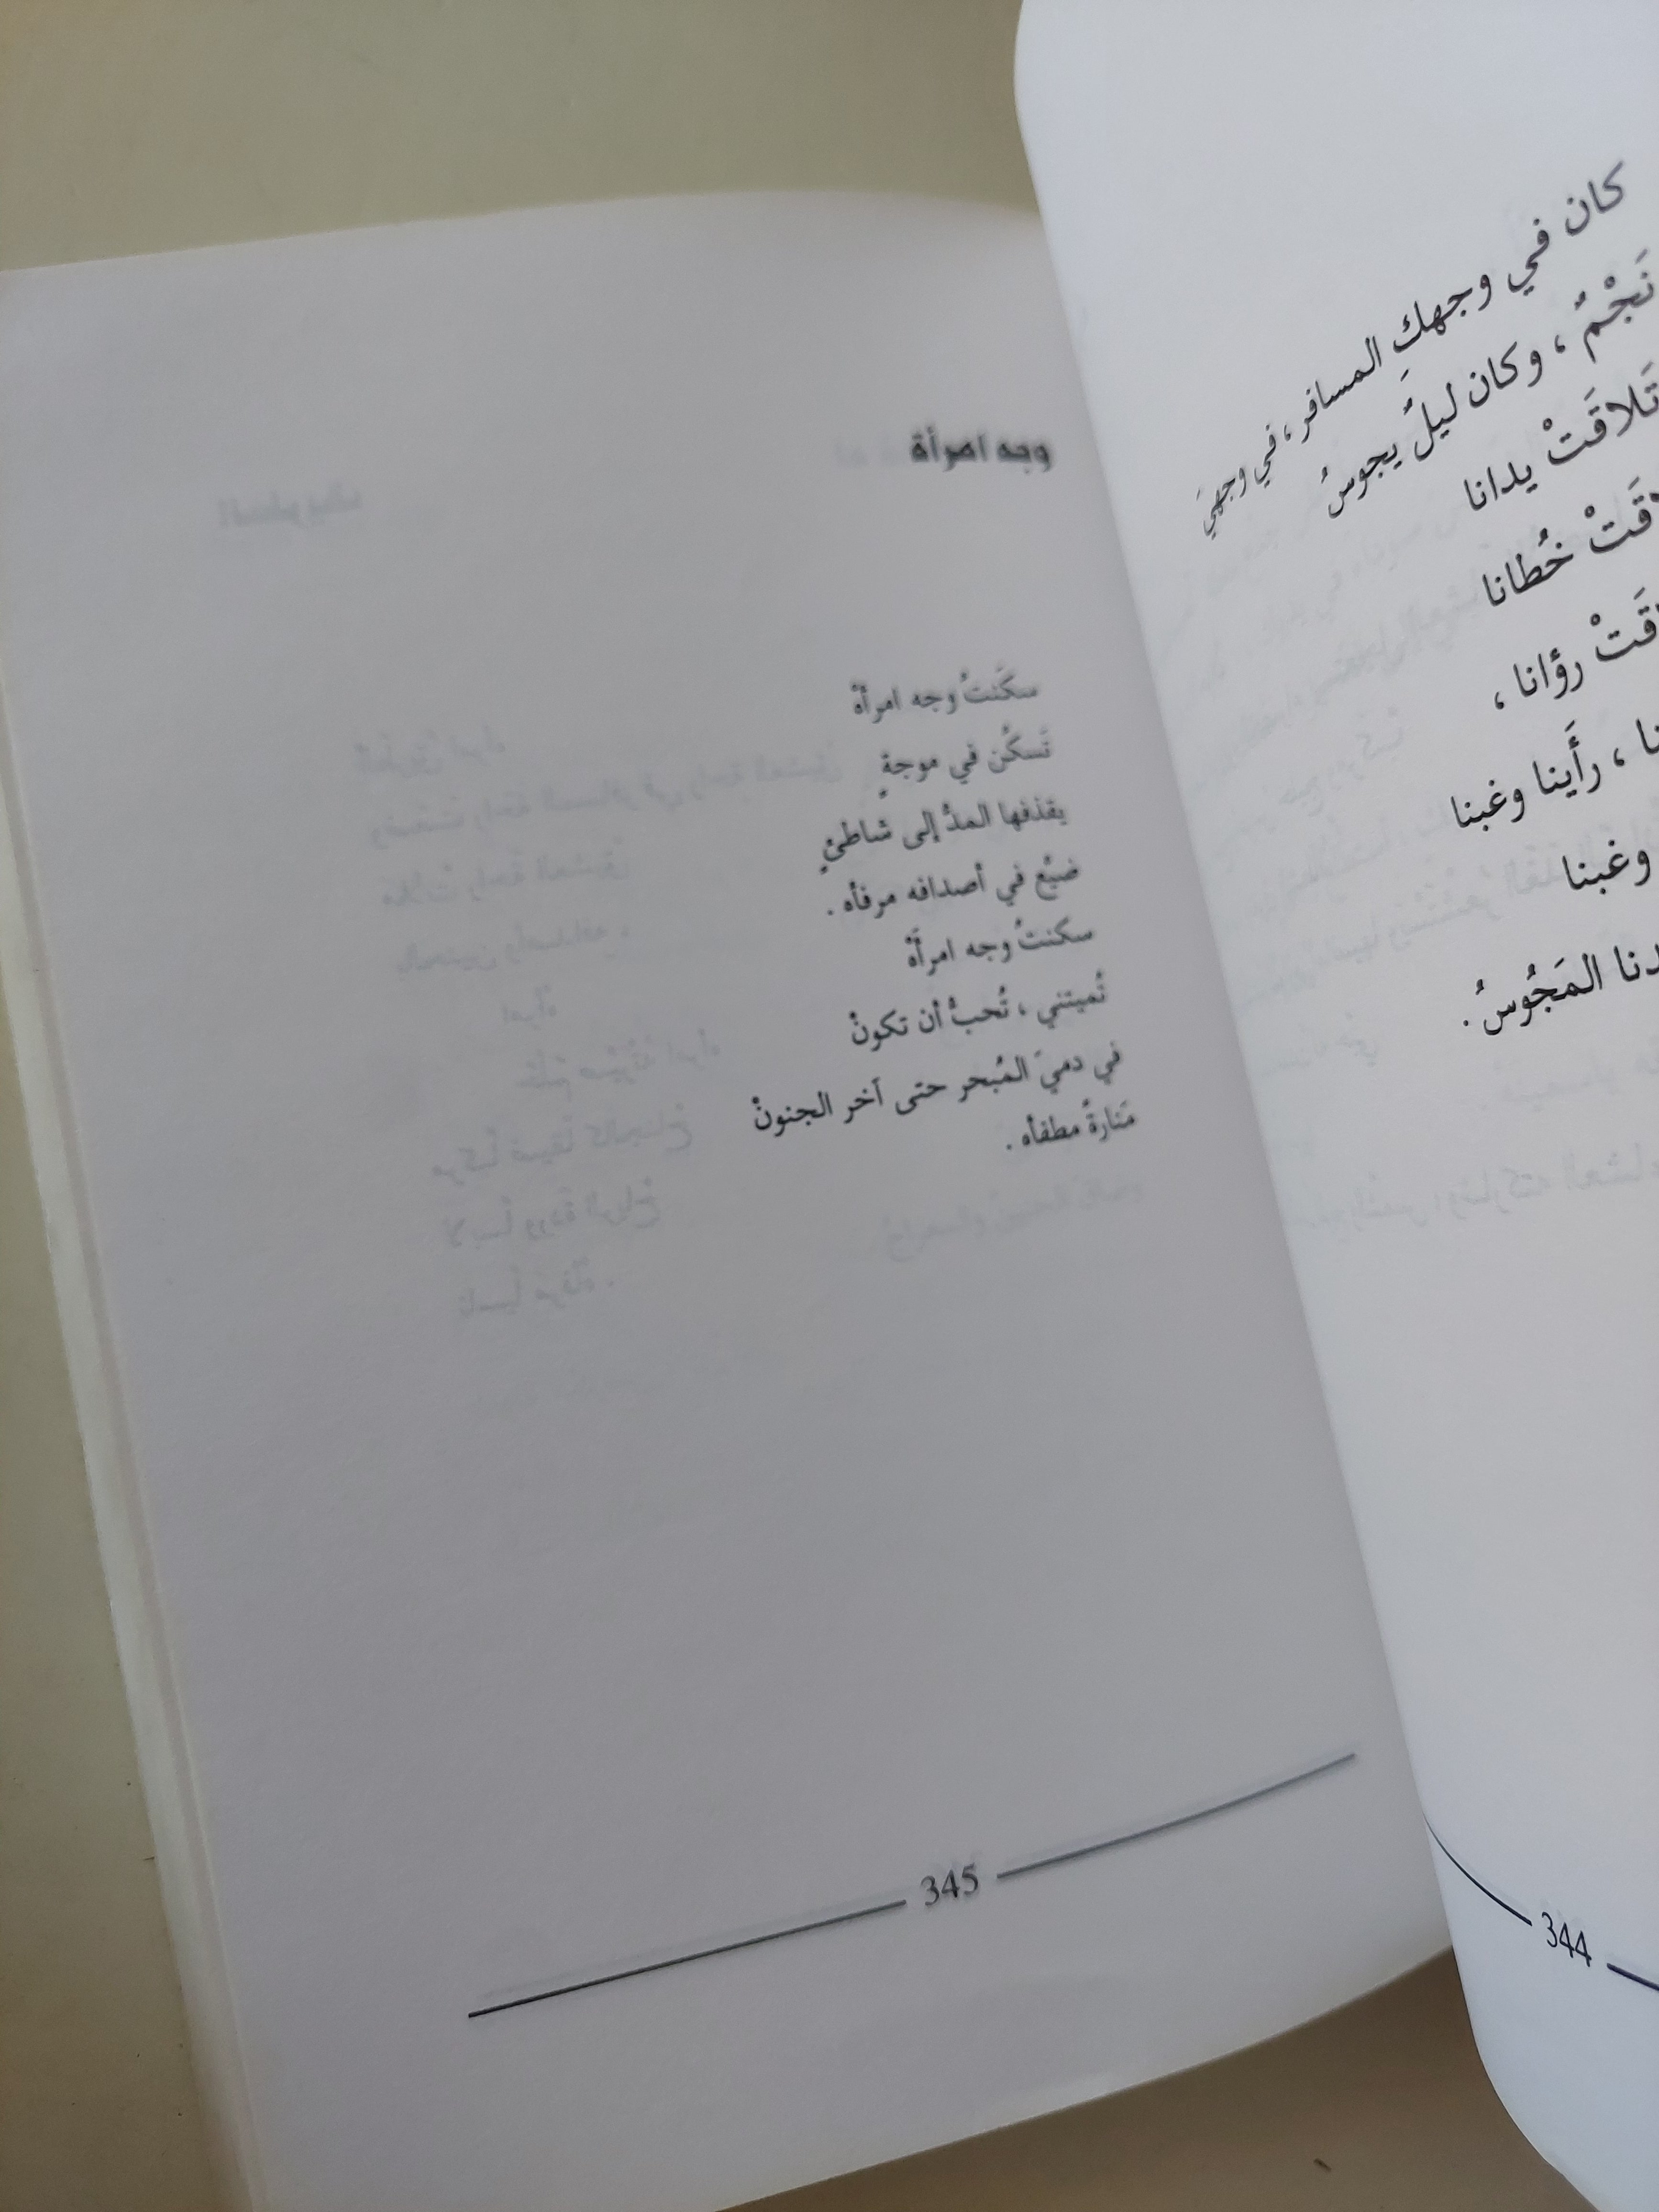 كان في وجهكِ المسافر، في وجهيَ
نَجْمٌ، وكان ليلٌ يجوسُ
تَلاقَتْ يدانا
خُطانا
رؤانا،
، رأَينا وغبنا
وغبنا
المَجُوسُ.
344
وجه امرأة
سكَنتُ وجه امرأةْ
تَسكُن في موجةٍ
يقذفها المدُّ إلى شاطئٍ
ضيَّع في أصدافه مرفأه.
سكنتُ وجه امرأَةْ
تُميتني، تُحبُّ أن تكونْ
في دميَ المُبحر حتى آخر الجنونْ
مَنارةً مطفأه.
345